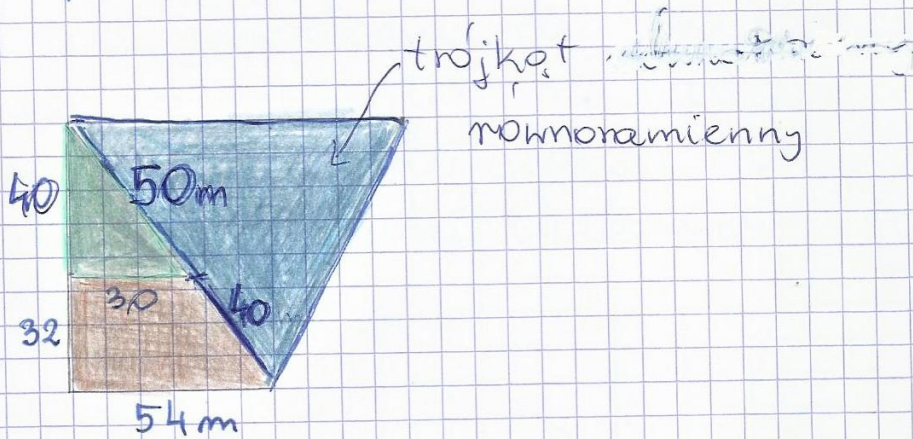 trójkąt
równoramienny
40
50m
30
40
32
54 m